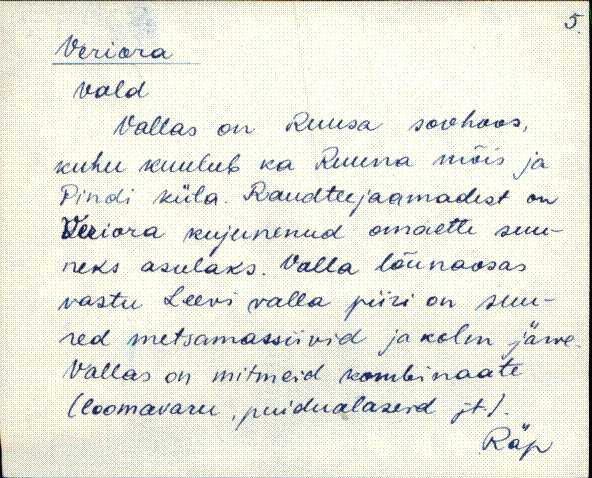 5.
Veriora
vald
Vallas on Ruusa sovhoos,
kuhu kuulub ka Ruuna mõis ja
Pindi küla. Raudteejaamadest on
Veriora kujunenud omaette suu-
neks asulaks. Valla lõunaosas
vastu Leevi valla piiri on suu-
red metsamassiivid ja kolm järve.
Vallas on mitmeid kombinaate
(loomavaru, puidualaseid jt.).
Räp